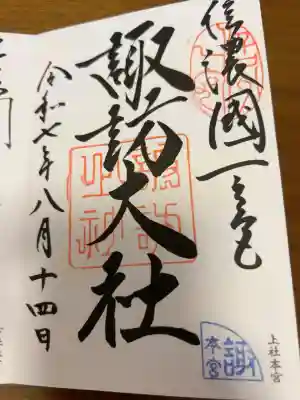 信濃國一之宮
諏訪大社
令和七年八月十四日
上社本宮
諏
本宮